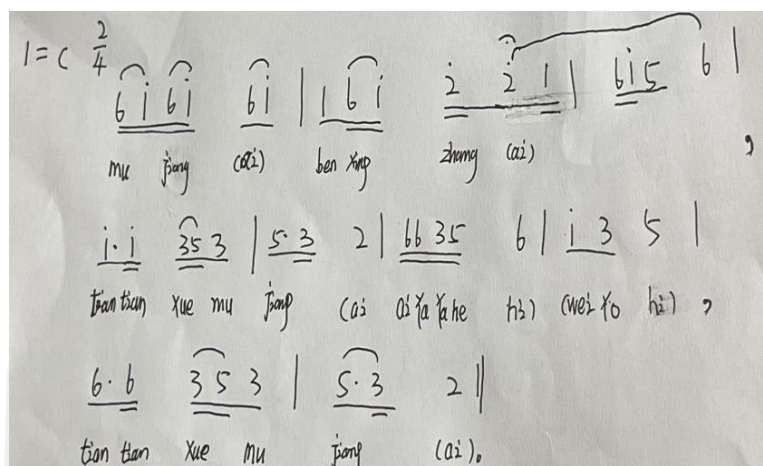 1=C 2/4 6 i 6 i 6 i | 1 6 i 2̇ 2̇ 1 | 6 i 5 6 |
mu jiang (ai) ben xing zhang (ai) ,
i· i 3 5 3 | 5· 3 2 | 6 6 3 5 6 | i 3 5 |
tian tian xue mu jiang (ai ai ya ya he hi) (wei yo hi) ,
6· 6 3 5 3 | 5· 3 2 ‖
tian tian xue mu jiang (ai)。